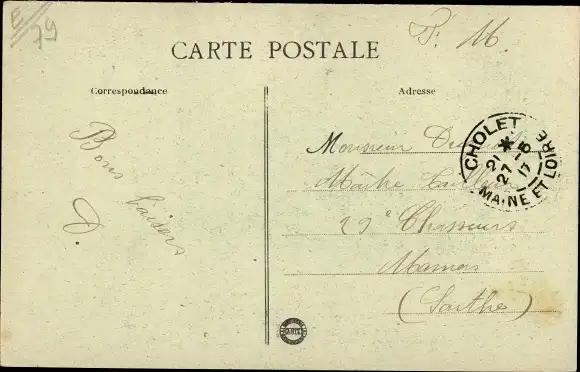 E
79
F. M.
CARTE POSTALE
Correspondance
Adresse
Bons baisers
D.
CHOLET
21 * 
27 - 5
17
MAINE ET LOIRE
Monsieur
Maître Tailleur
29e Chasseurs
Mamers
(Sarthe)